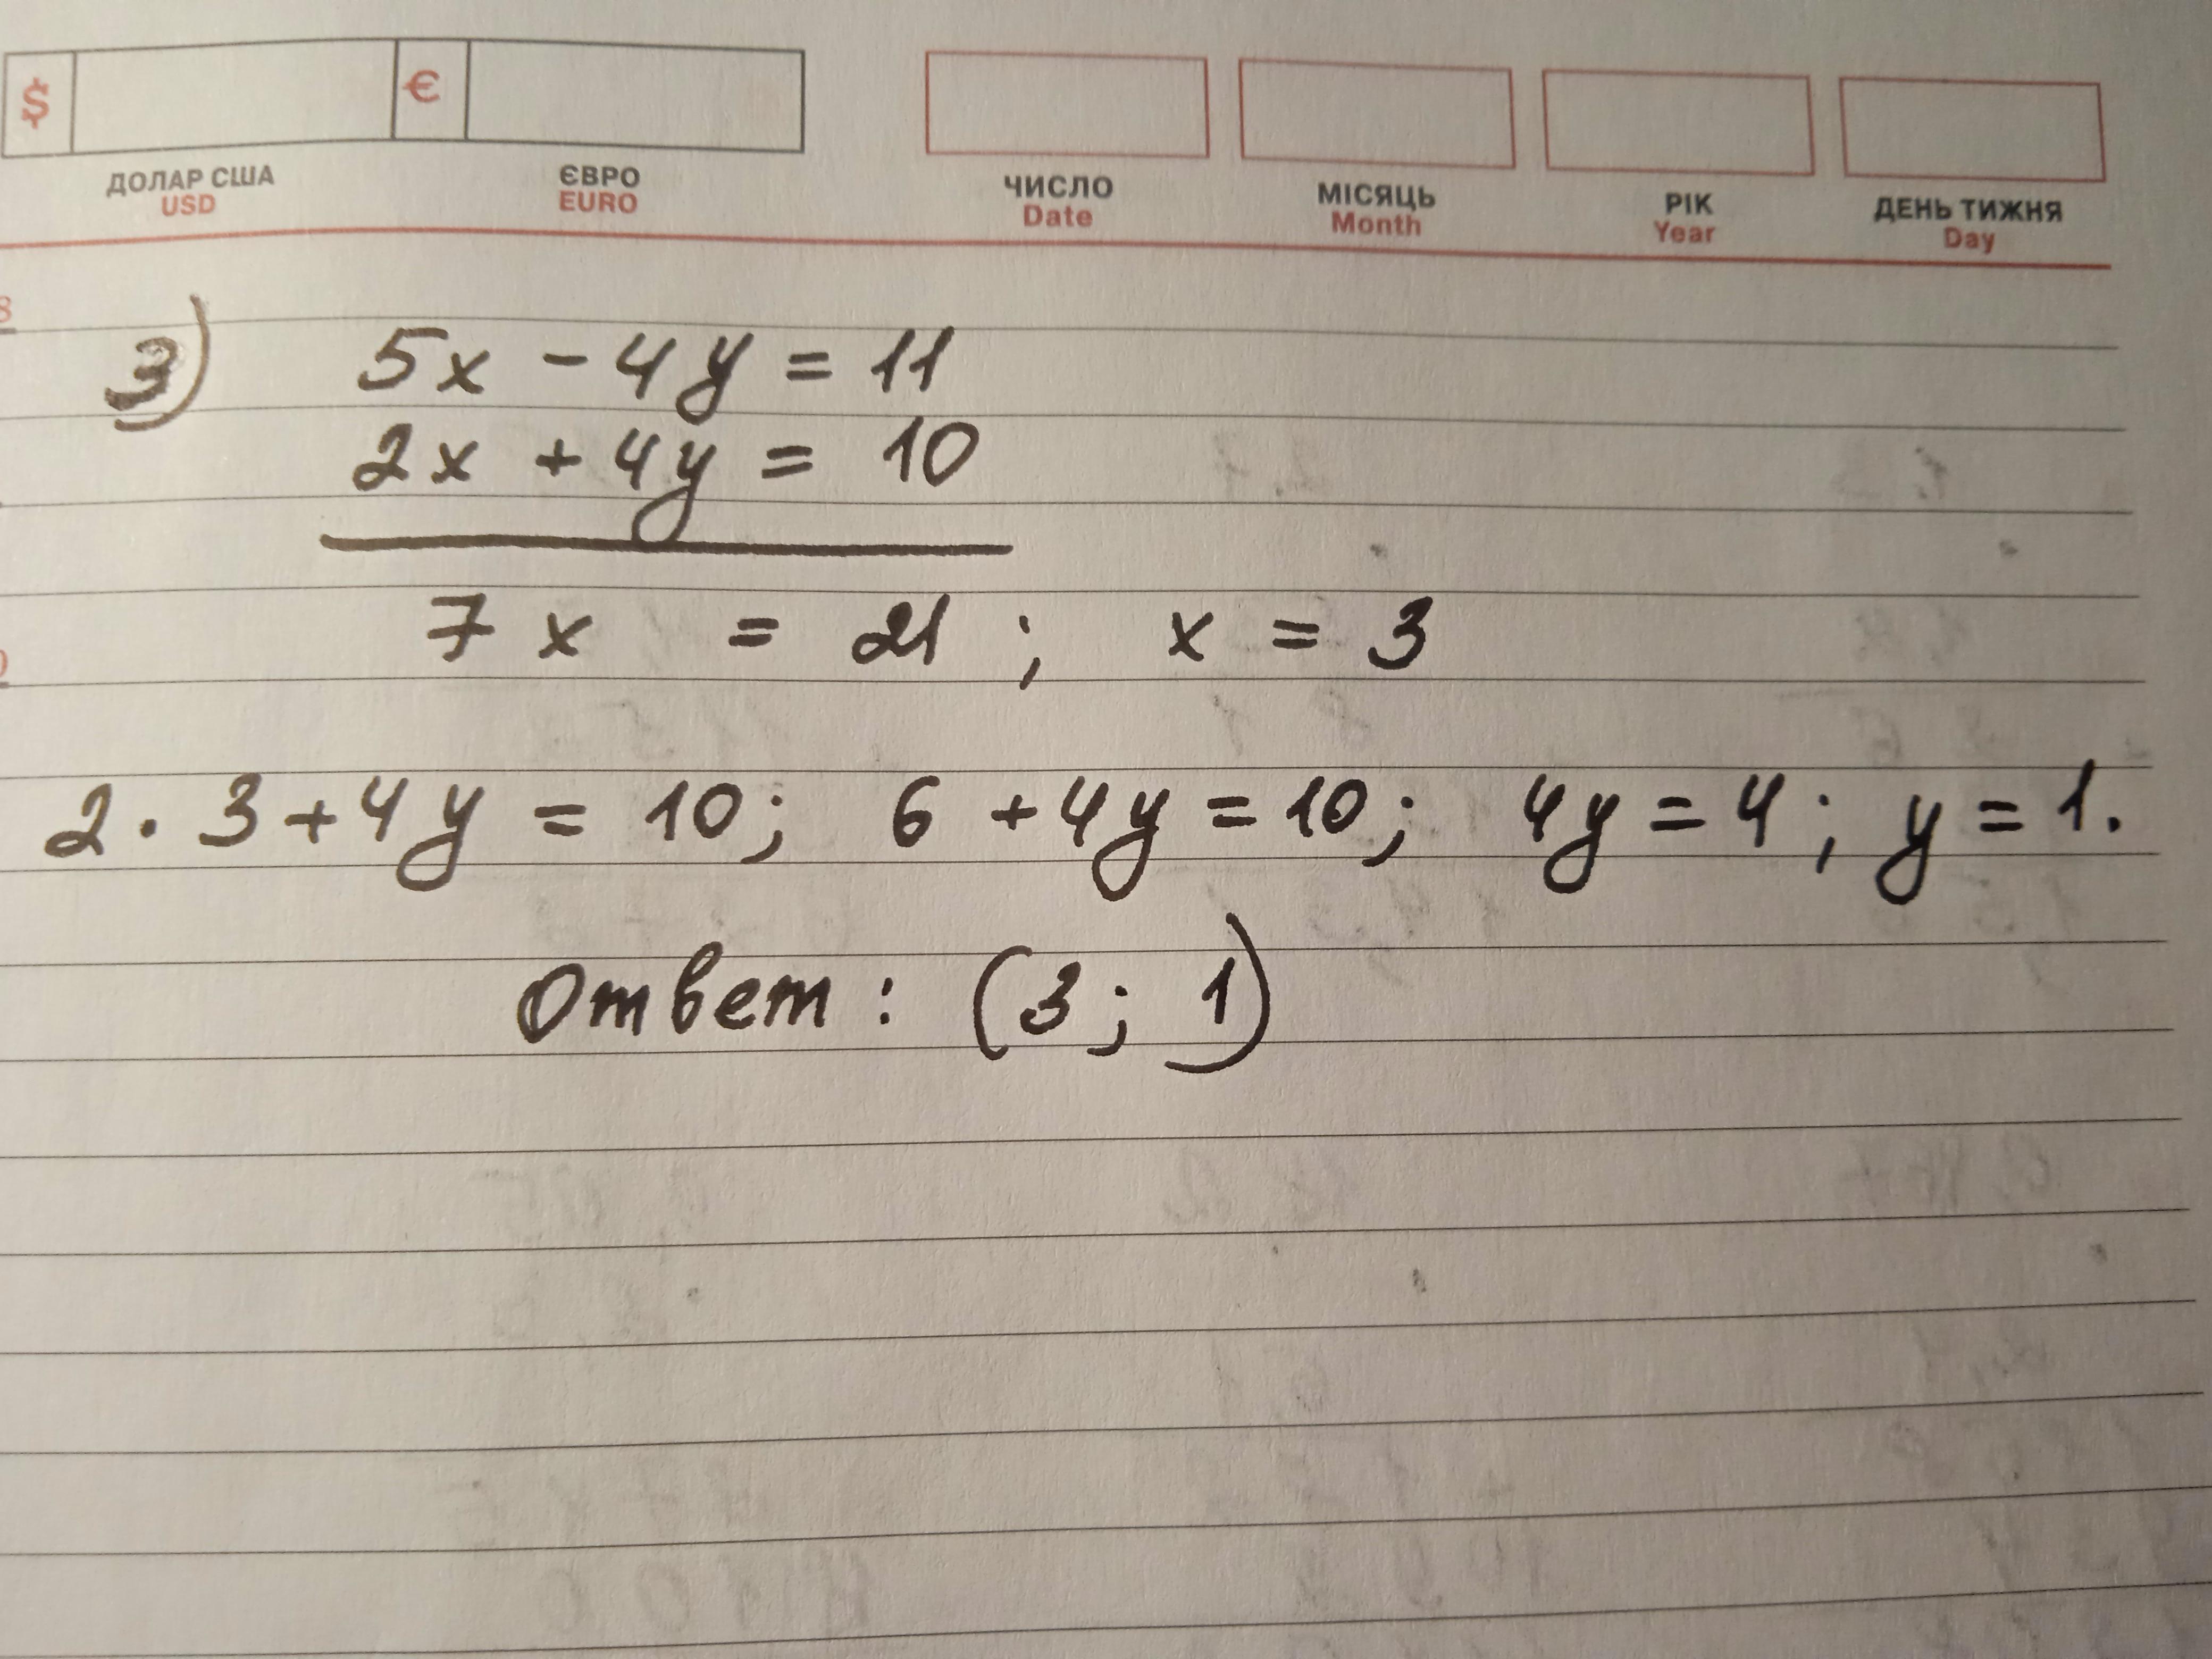 $ €
ДОЛАР США ЄВРО ЧИСЛО МІСЯЦЬ РІК ДЕНЬ ТИЖНЯ
USD EURO Date Month Year Day
3) 5x - 4y = 11
2x + 4y = 10
7x = 21 ; x = 3
2 · 3 + 4y = 10; 6 + 4y = 10; 4y = 4 ; y = 1.
Ответ : (3 ; 1)